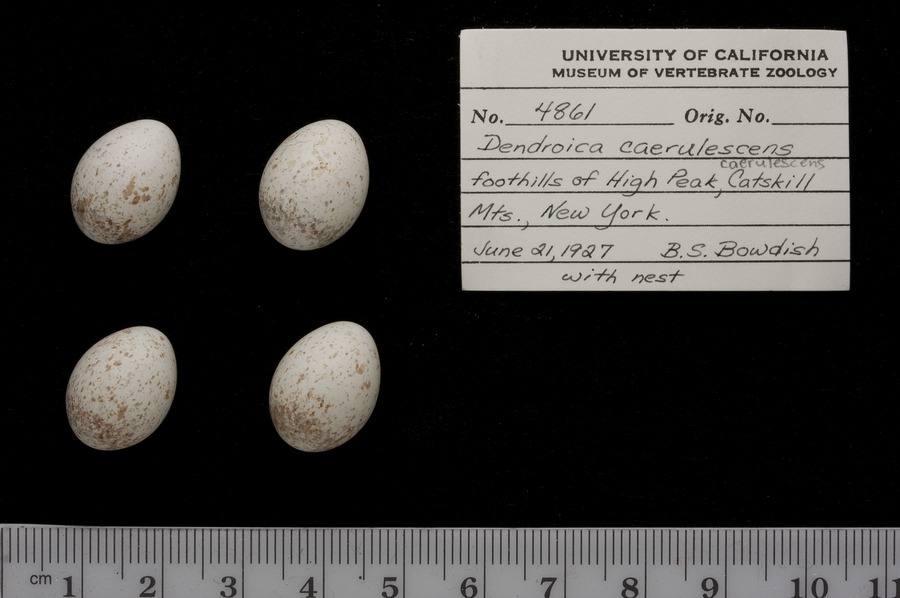 UNIVERSITY OF CALIFORNIA
MUSEUM OF VERTEBRATE ZOOLOGY
No. 4861 Orig. No.
Dendroica caerulescens
caerulescens
foothills of High Peak, Catskill
Mts., New York.
June 21, 1927 B.S. Bowdish
with nest
cm 1 2 3 4 5 6 7 8 9 10 11